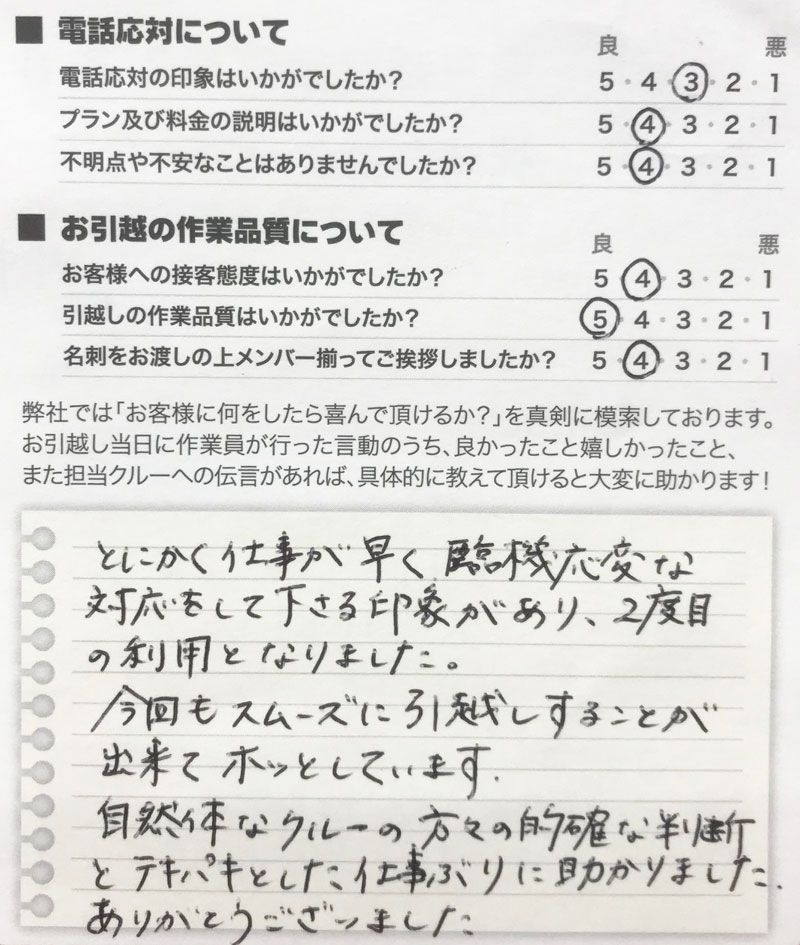 ■ 電話応対について
良 悪
電話応対の印象はいかがでしたか? 5・4・3・2・1
プラン及び料金の説明はいかがでしたか? 5・4・3・2・1
不明点や不安なことはありませんでしたか? 5・4・3・2・1
■ お引越の作業品質について
良 悪
お客様への接客態度はいかがでしたか? 5・4・3・2・1
引越しの作業品質はいかがでしたか? 5・4・3・2・1
名刺をお渡しの上メンバー揃ってご挨拶しましたか? 5・4・3・2・1
弊社では「お客様に何をしたら喜んで頂けるか?」を真剣に模索しております。
お引越し当日に作業員が行った言動のうち、良かったこと嬉しかったこと、
また担当クルーへの伝言があれば、具体的に教えて頂けると大変に助かります!
とにかく仕事が早く臨機応変な
対応をして下さる印象があり、2度目
の利用となりました。
今回もスムーズに引越しすることが
出来てホッとしています.
自然体なクルーの方々の的確な判断
とテキパキとした仕事ぶりに助かりました.
ありがとうございました